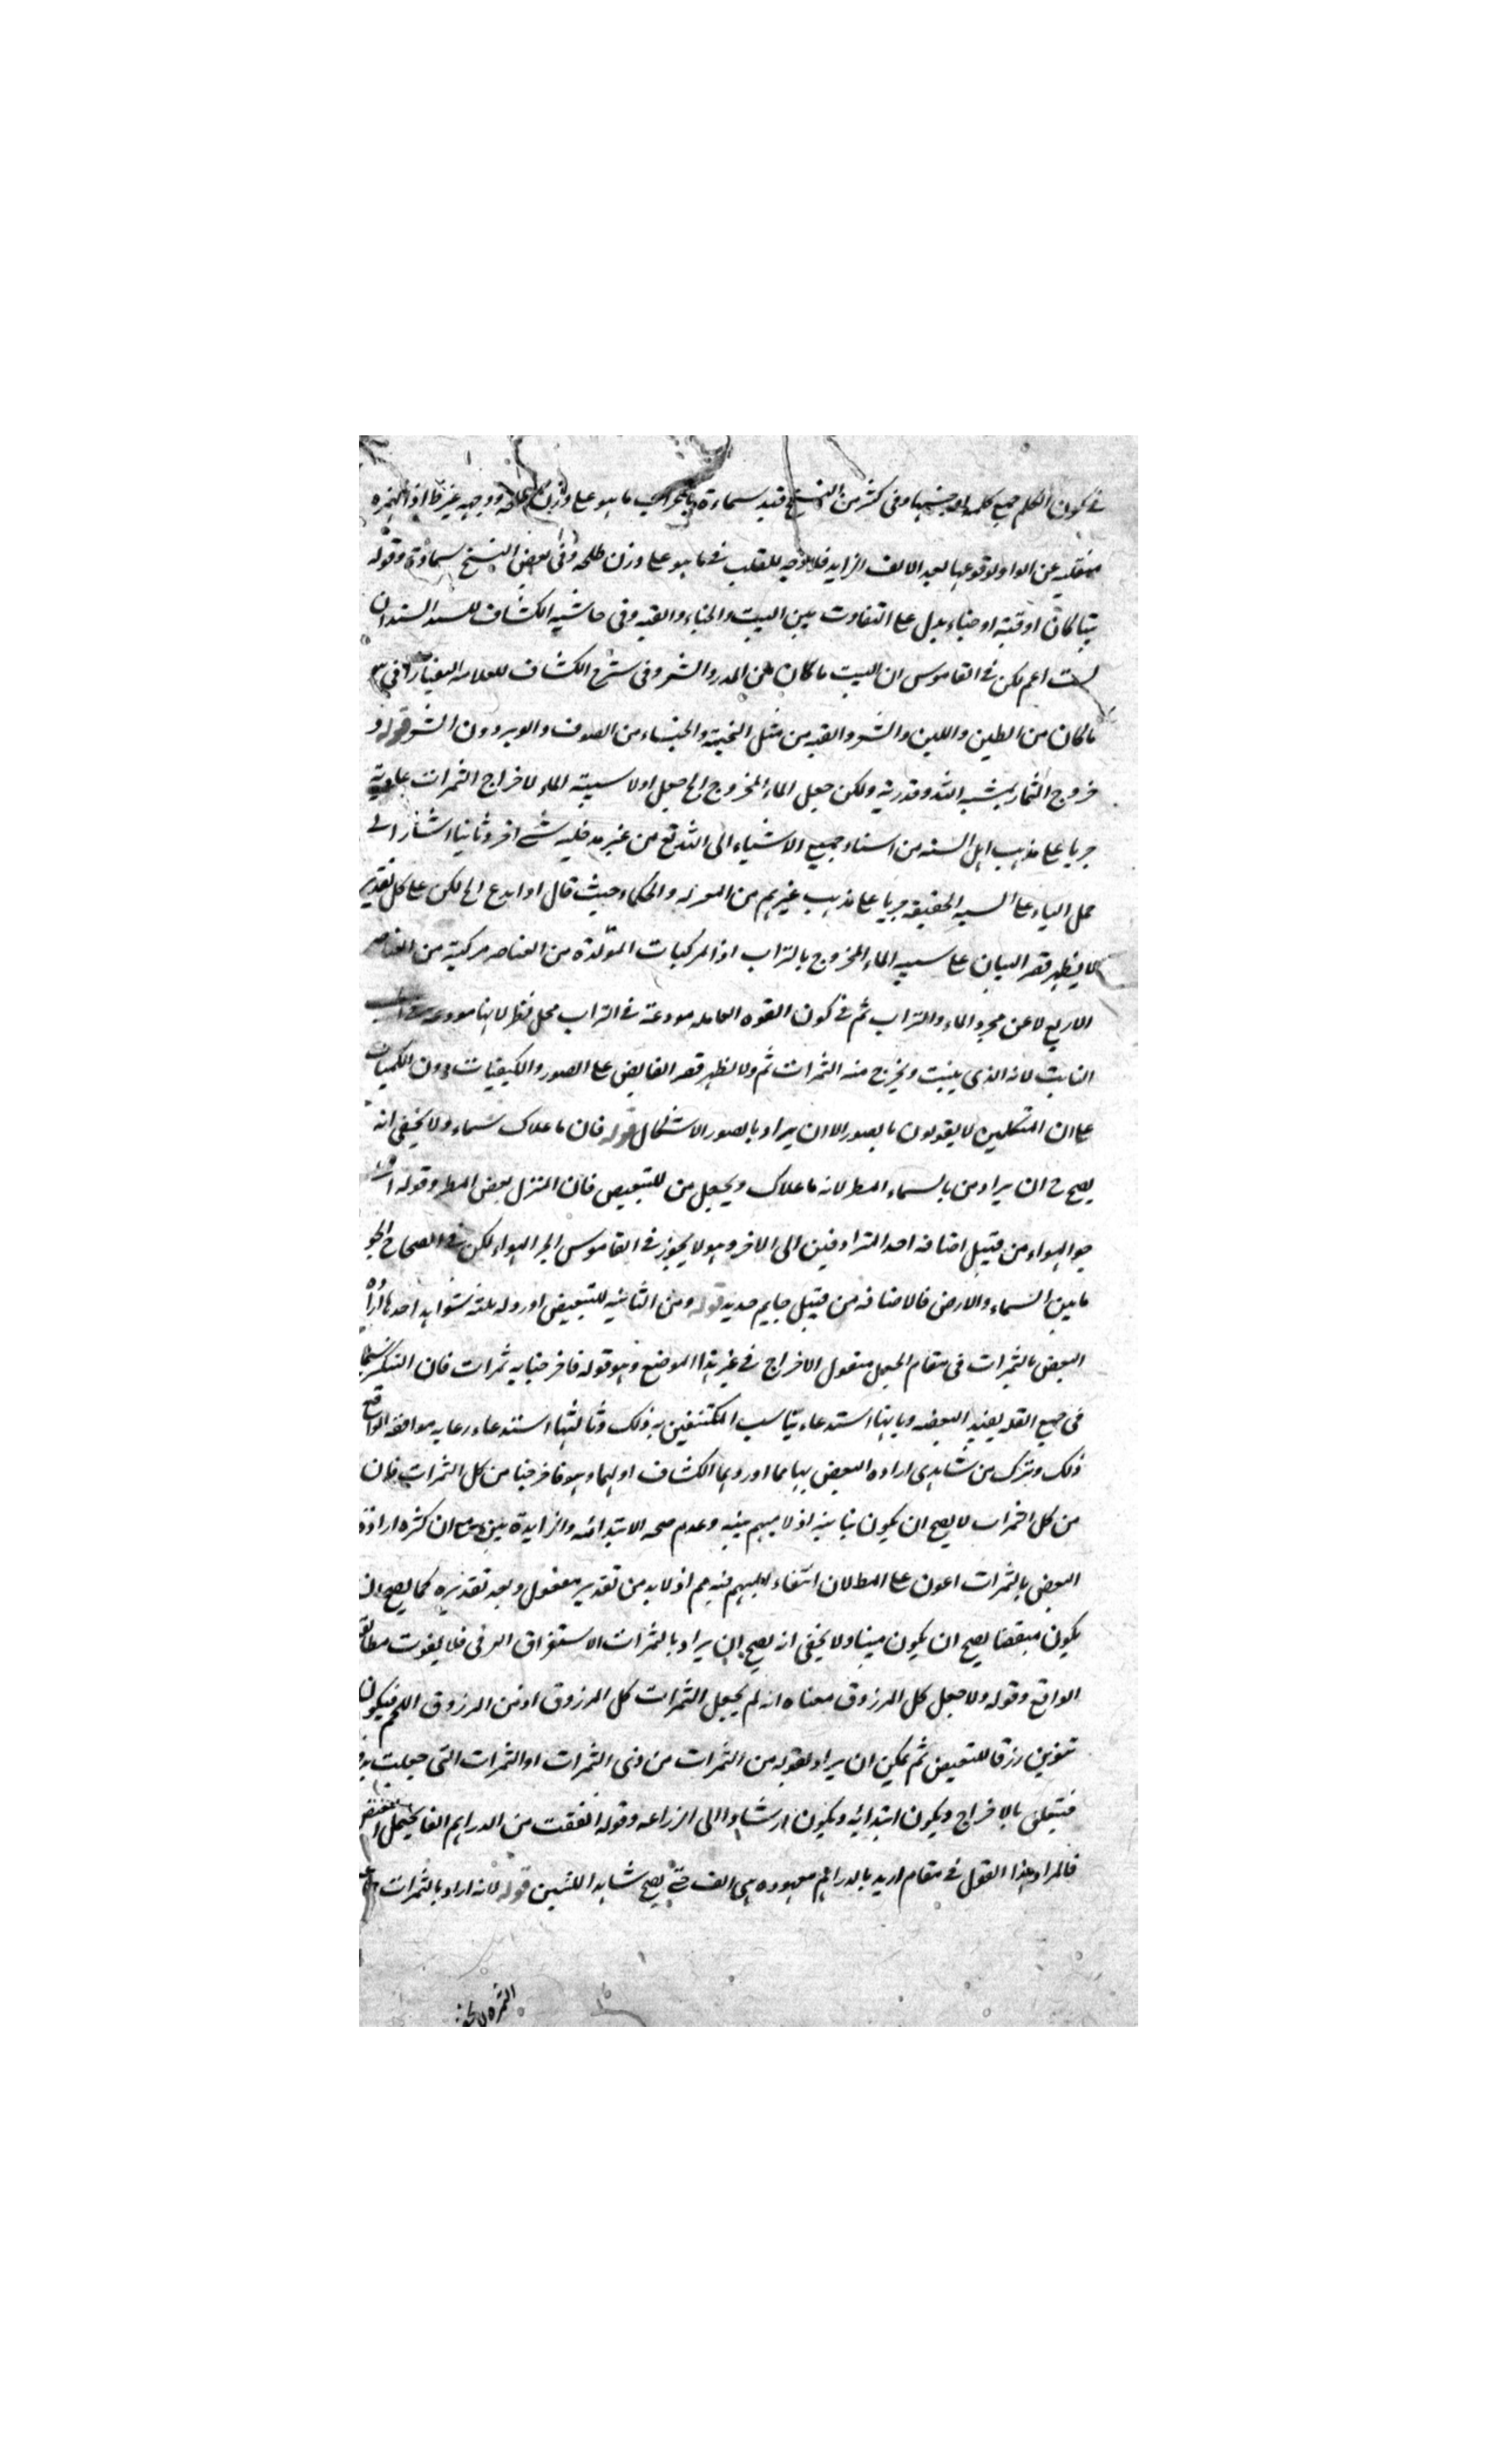 في كون الكلم جمع كلمة او جنسها وفي كثير من النسخ قيد سماءة بالهمزة ما هو على وزن ووجهه غير ظ اذ الهمزة
منقلبة عن الواو لوقوعها بعد الالف الزايد فلا وجه للقلب في ما هو على وزن طلحة وفي بعض النسخ سماوة وقوله
بيتا كان او قبة او خباء يدل على التفاوت بين البيت والخباء والقبة وفي حاشية الكشاف للسيد السند ان
البيت اعم لكن في القاموس ان البيت ما كان من المدر والشعر وفي شرح الكشاف للعلامة التفتازاني
ما كان من الطين واللبن والشعر والقبة من مثل الخيمة والخباء من الصوف والوبر دون الشعر قوله و
خروج الثمار بمشية الله وقدرته ولكن جعل الماء الممزوج الخ جعل اولا سببية الماء لاخراج الثمرات عادية
جريا على مذهب اهل السنة من اسناد جميع الاشياء الى الله تع من غير مدخلية شيء اخر وثانيا اشار الى
حمل الباء على السببية الحقيقية جريا على مذهب غيرهم من المعتزلة والحكماء حيث قال او ابدع الخ لكن على كل تقدير
لا يظهر قصر البيان على سببية الماء الممزوج بالتراب اذ المركبات المتولدة من العناصر مركبة من العناصر
الاربع لا عن مجرد الماء والتراب ثم في كون القوة العاملة مودعة في التراب محل نظر لانها مودعة في
النابت لانه الذي ينبت ويخرج منه الثمرات ثم ولا يظهر قصر الفايض على الصور والكيفيات دون الكميات
على ان المتكلمين لا يقولون بالصور الا ان يراد بالصور الاشكال قوله فان ما علاك سماء ولا يخفى انه
يصح ح ان يراد من بالسماء المطر لانه ما علاك ويجعل من للتبعيض فان المنزل بعض المطر وقوله
جو الهواء من قبيل اضافة احد المترادفين الى الاخر وهو لا يجوز في القاموس الجو الهواء لكن في الصحاح الجو
ما بين السماء والارض فالاضافة من قبيل خاتم حديد قوله ومن الثانية للتبعيض اورد له ثلثة شواهد احدها ارادة
البعض بالثمرات في مقام الجعل مفعول الاخراج في غير هذا الموضع وهو قوله فاخرجنا به ثمرات فان التنكير سيما
في جمع القلة يفيد البعضية وثانيها استدعاء تناسب المكتنفين به ذلك وثالثها استدعاء رعاية موافقة الواقع
ذلك وترك من شاهدي ارادة البعض بها مما اوردهما الكشاف اوليهما وهو فاخرجنا من كل الثمرات فان
من كل الثمرات لا يصح ان يكون بيانية اذ لا مبهم يبينه وعدم صحة الابتدائية والزايدة بين ان كثرة ارادة
البعض بالثمرات اعون على المط لان انتفاء المبهم فيه مم اذ لا بد من تقدير مفعول وبعد تقديره كما يصح ان
يكون مبعضا يصح ان يكون مبينا ولا يخفى انه يصح ان يراد بالثمرات الاستغراق العرفي فلا يفوت مطابقة
الواقع وقوله ولا جعل كل المرزوق معناه انه لم يجعل الثمرات كل المرزوق اذ من المرزوق اللحم فيكون
تنوين رزقا للتبعيض ثم يمكن ان يراد بقوله من الثمرات من ذي الثمرات او الثمرات التي جعلت
فيتعلق بالاخراج ويكون ابتدائية ويكون ارشادا الى الزراعة وقوله انفقت من الدراهم الفا يحتمل
فالمراد بهذا القول في مقام اريد بالدراهم معهودة هي الف حتى يصح شاهدا للتبيين قوله لانه اراد بالثمرات
الثمرة